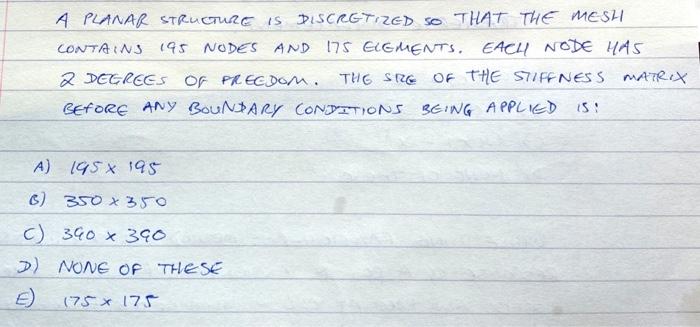 A PLANAR STRUCTURE IS DISCRETIZED SO THAT THE MESH
CONTAINS 195 NODES AND 175 ELEMENTS. EACH NODE HAS
2 DEGREES OF FREEDOM. THE SIZE OF THE STIFFNESS MATRIX
BEFORE ANY BOUNDARY CONDITIONS BEING APPLIED IS:
A) 195 x 195
B) 350 x 350
C) 390 x 390
D) NONE OF THESE
E) 175 x 175